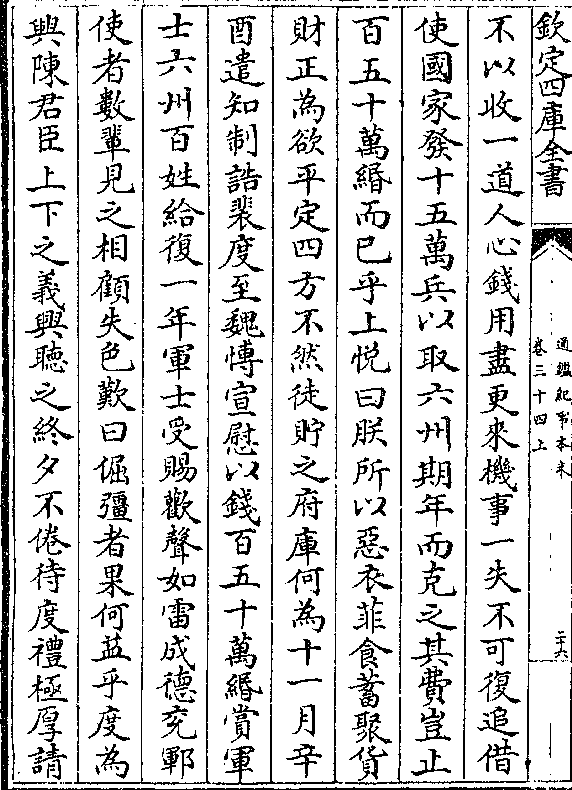 欽定四庫全書
通鑑紀事本末
卷三十四上
二十六
不以收一道人心錢用盡更來機事一失不可復追借
使國家發十五萬兵以取六州期年而克之其費豈止
百五十萬緡而已乎上悦曰朕所以惡衣菲食蓄聚貨
財正為欲平定四方不然徒貯之府庫何為十一月辛
酉遣知制誥裴度至魏博宣慰以錢百五十萬緡賞軍
士六州百姓給復一年軍士受賜歡聲如雷成德兖鄆
使者數輩見之相顧失色歎曰倔彊者果何益乎度為
興陳君臣上下之義興聽之終夕不倦待度禮極厚請